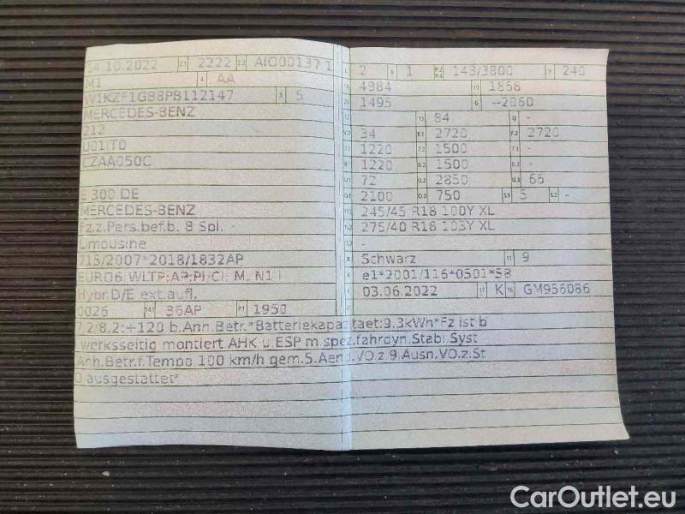 10.2022 2222 AIO00137 1
M1 AA
W1KZF1GB8PB112147 5
MERCEDES-BENZ
212
CZAA050C
E 300 DE
MERCEDES-BENZ
Fz.z.Pers.bef.b. 8 Spl. -
Limousine
715/2007*2018/1832AP
EURO6 WLTP;AP;PI-CI; M, N1 I
Hybr.D/E ext.aufl.
0026 36AP 1950
2 1 143/3800 240
4984 1868
1495 --2060
84 -
34 2720 2720
1220 1500 -
1220 1500 -
72 2850 66
2100 750 5 -
245/45 R18 100Y XL
275/40 R18 103Y XL
-
Schwarz 9
e1*2001/116*0501*58
03.06.2022 K GM956086
7.2/8.2:+120 b.Ann.Betr.*Batteriekapazitaet:9.3kWh*Fz ist b
werksseitig montiert AHK u.ESP m spez.fahrdyn.Stabi.Syst
Anh.Betr.f.Tempo 100 km/h gem.5.Aend.VO.z.9.Ausn.VO.z.St
O ausgestattet*
CarOutlet.eu